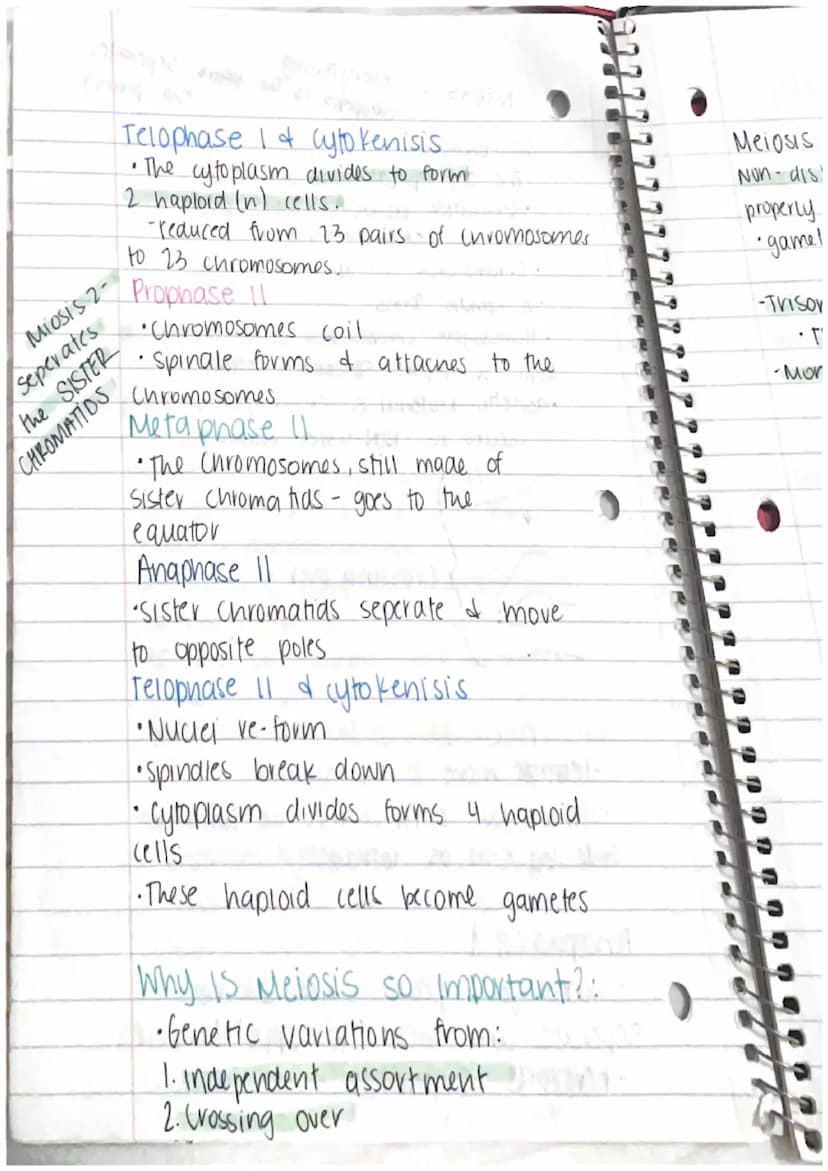 Telophase I & cytokenisis
• The cytoplasm divides to form
2 haploid (n) cells.
-reduced from 23 pairs of chromosomes
to 23 chromosomes.
Miosis 2-
seperates
the SISTER
CHROMATIDS
Prophase II
• Chromosomes coil
• Spindle forms & attaches to the
chromosomes
Metaphase II
• The chromosomes, still made of
sister chromatids - goes to the
equator
Anaphase II
• Sister chromatids seperate & move
to opposite poles
Telophase II & cytokenisis
• Nuclei re-form
• spindles break down
• cytoplasm divides forms 4 haploid
cells
• These haploid cells become gametes
Why Is Meiosis so Important?:
• Genetic variations from:
1. independent assortment
2. Crossing over
Meiosis
Non-dis
properly
• gamet
-Trisom
-Mon